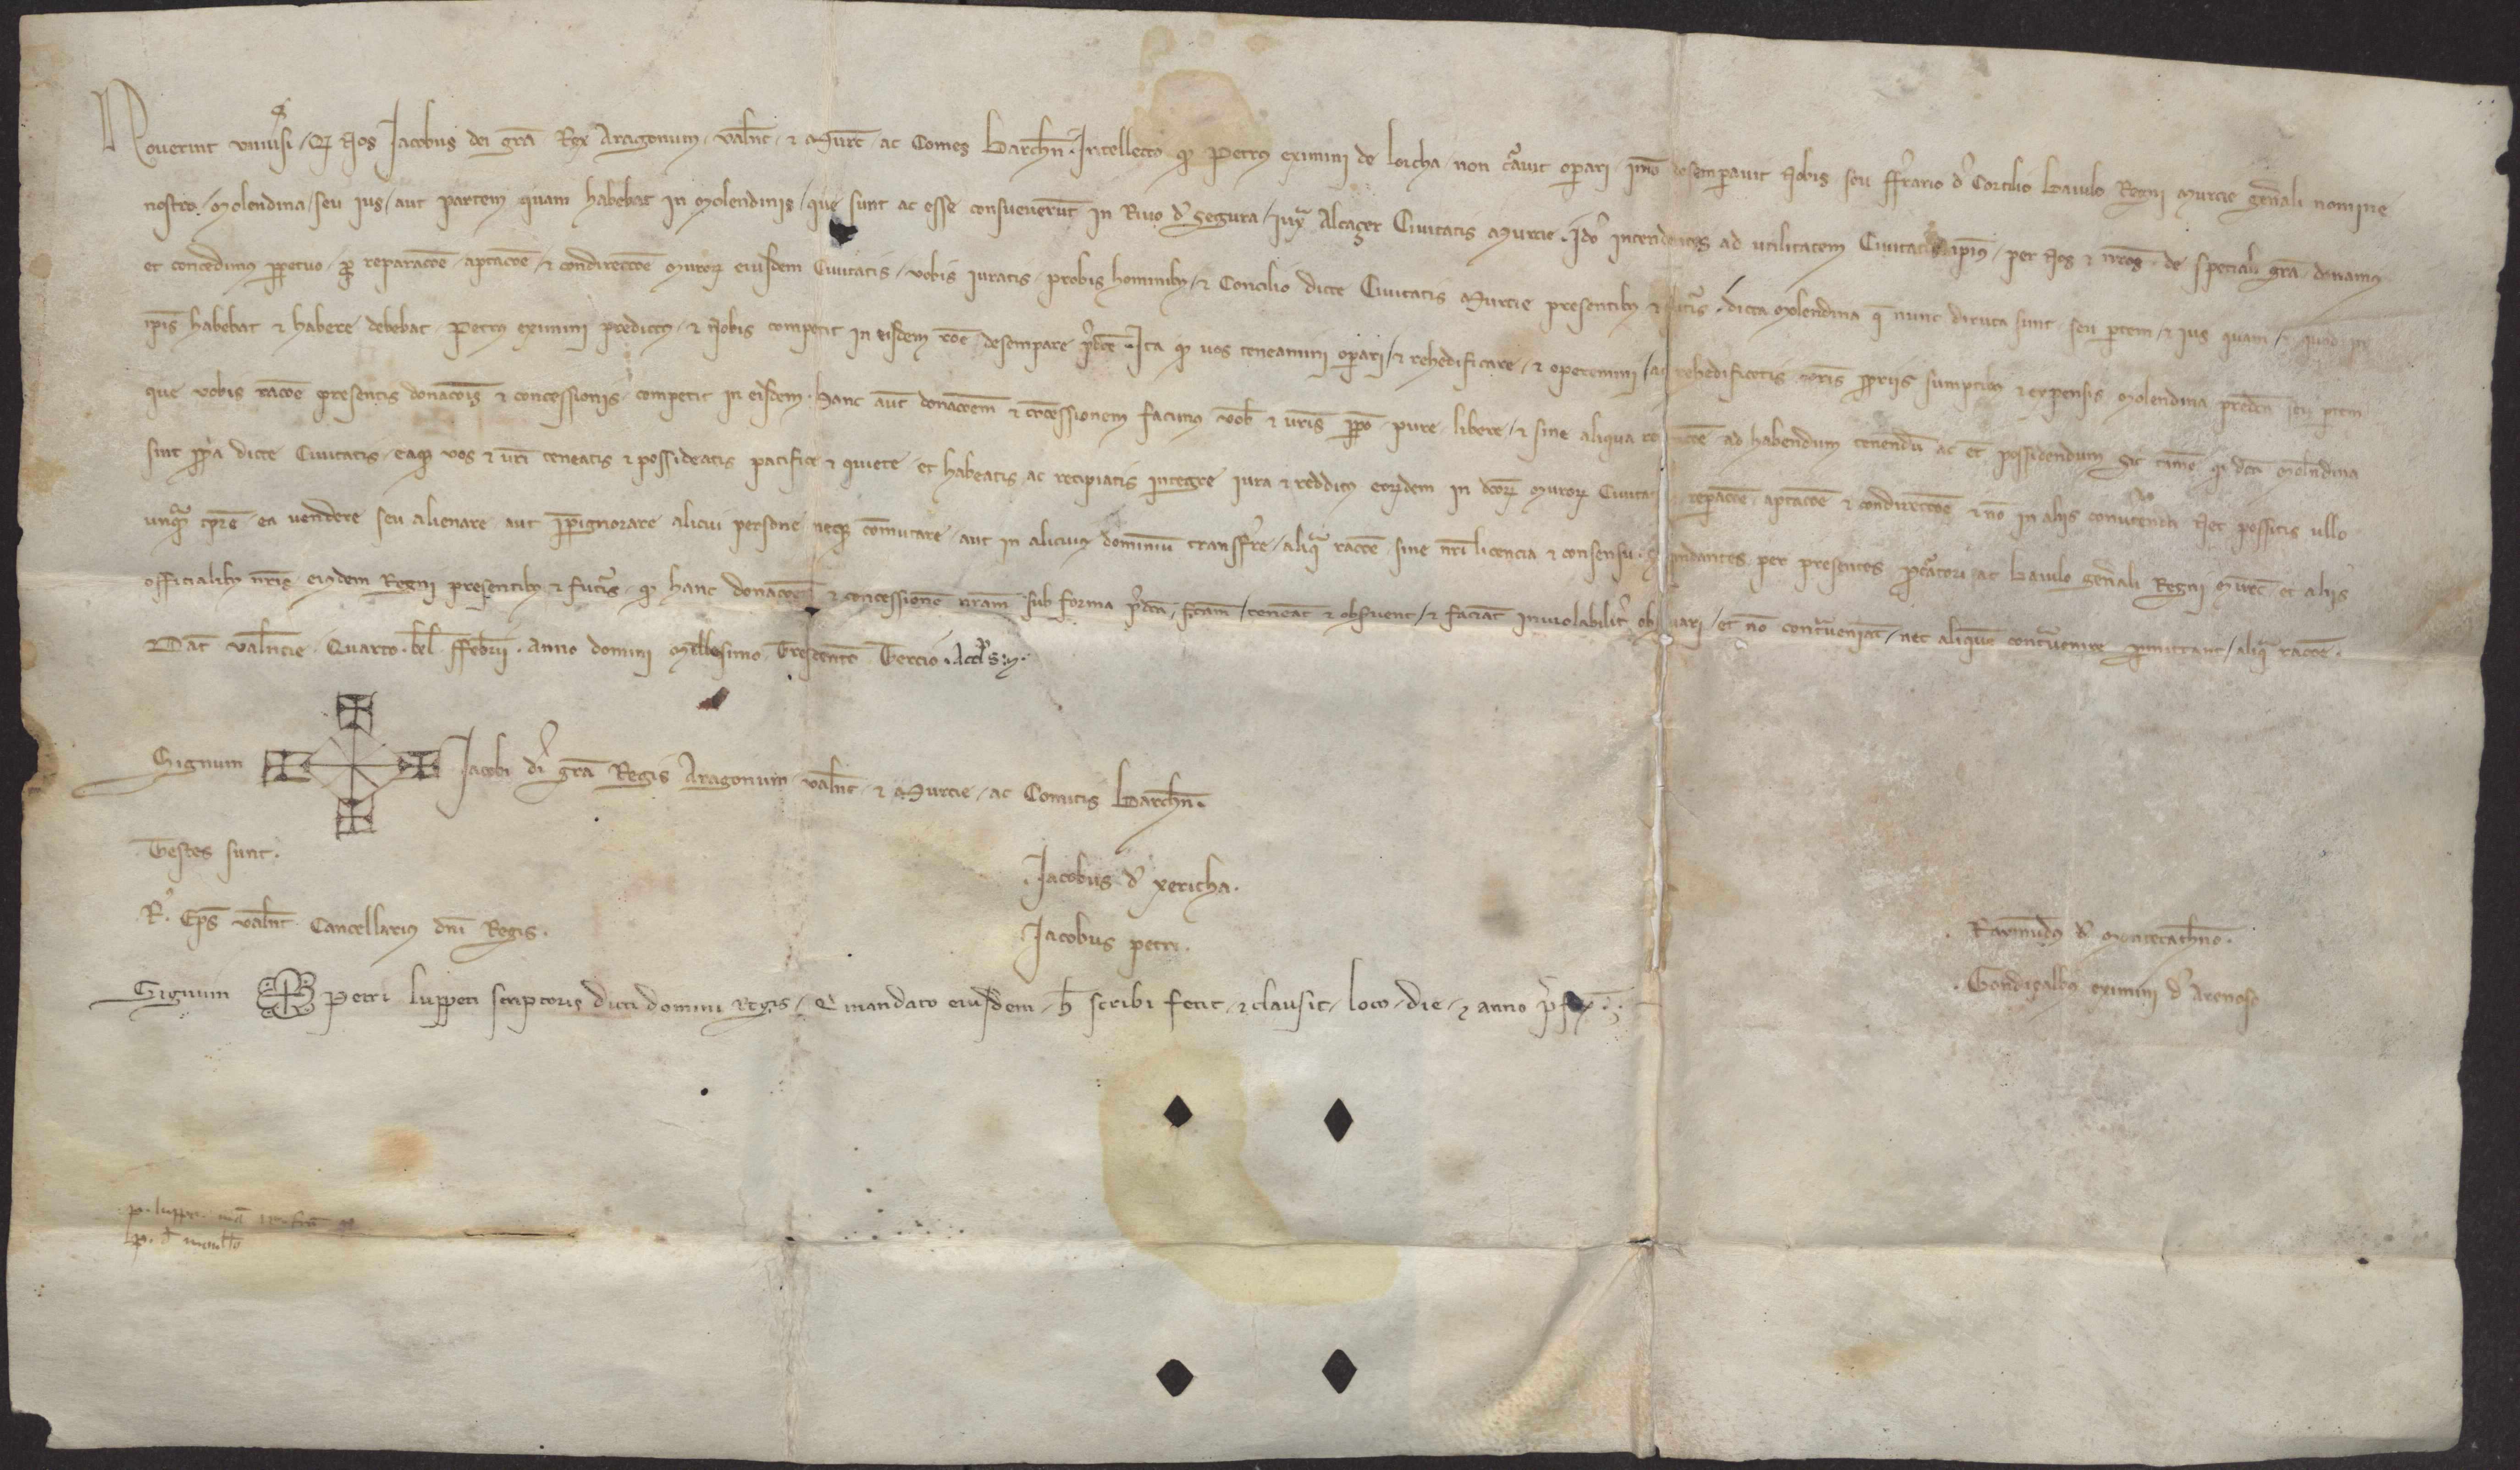 Noverint univ̄si / Q̄ Nos Jacobus dei gr̄a Rex Aragonum / valn̄t / ⁊ Murc̄ / ac Comes Barchn̄. Intellecto qđ Petrus eximini de lorcha / non c̄avit operari / im̄o desemparavit Nobis seu fferrario d' Cortilio Baiulo Regni Murcie gen̄ali nomine
nostro / Molendina / seu ius / aut partem quam habebat in Molendinis / que sunt ac esse consueuerūt in Riuo d' Segura / iux̄ Alcaçer Ciuitatis Murcie. Id̄o intendentes ad utilitatem Ciuitatis ip̄ius / per Nos ⁊ nr̄os / de speciali gr̄a donamus
et concedimus ꝑpetuo / ꝓ reparac̄oe / aptac̄oe / ⁊ condirecc̄oe Muroꝝ eiusdem Ciuitatis / vobis iuratis / probis hominibꝫ / ⁊ Concilio dicte Ciuitatis Murcie presentibꝫ ⁊ futur̄s / dicta Molendina q̄ nunc diruta sunt / seu ꝑtem / ⁊ ius quam / ⁊ quod in
ip̄is habebat ⁊ habere debebat / Petrus eximini predictus / ⁊ Nobis competit in eisdem rōe desempare p̄dc̄e. Ita qđ uos teneamini operari / ⁊ rehedificare / ⁊ operemini / ac rehedificetis vr̄is ꝓpriis sumptibꝫ ⁊ expensis Molendina predc̄a seu ꝑtem
que vobis rac̄oe presentis donac̄ois ⁊ concessionis competit in eisdem. Hanc aūt donac̄oem ⁊ cōcessionem facimus vob̄ ⁊ ur̄is ꝑpo / pure / libere / ⁊ sine aliqua re ad habendum tenendū ac eī possidendum Sic tam̄e qđ dc̄a Molendina
sint ꝓpria dicte Ciuitatis / eaqꝫ vos ⁊ ur̄i teneatis ⁊ possideatis pacifice ⁊ quiete / et habeatis / ac recipiatis integre iura ⁊ redditus eoꝝdem in dc̄oꝝ Muroꝝ Ciuitatis repac̄oe / aptac̄oe ⁊ condirecc̄oe ⁊ nō in aliis conu̅tenda Nec possitis ullo
unq̄m tp̄re / ea vendere seu alienare aut īpignorare alicui persone / neqꝫ cōmutare / aut in alicuius dominiū transff̄re / aliq̄ rac̄oe / sine nr̄i licencia ⁊ consensu. Mandantes per presentes ꝓc̄atori / ac Baiulo gen̄ali Regni Murc̄ / et aliis
officialibꝫ nr̄is / eiusdem Regni presentibꝫ ⁊ futur̄s / qđ hanc donac̄oem ⁊ concessionē nr̄am sub forma p̄dc̄a / fc̄am / teneāt ⁊ obseruent / ⁊ faciāt inuiolabilit̄ obseruari / et nō contraueniāt / nec aliquē contrauenire ꝑmittant / aliq̄ rac̄oe.
Dat̄ valn̄cie / Quarto . kl̄ . ffebrīi . Anno domini Millesimo Trescentē Tercio .
Signum Jacobi d'i gr̄a Regis Aragonum valn̄t / ⁊ Murcie / ac Comitis Barchn̄.
Testes sunt.
Jacobus d' xericha.
R'. Ep̄s valn̄t Cancellarius dn̄i Regis.
Jacobus petri.
Raymundus d' Montecathēno.
Gondiçalbus eximini d' Arenoso
Signum Petri luppeti scriptoris dicti domini Regis / Q' mandato eiusdem / h̄ scribi fecit / ⁊ clausit / loco / die / ⁊ anno p̄fix̄.